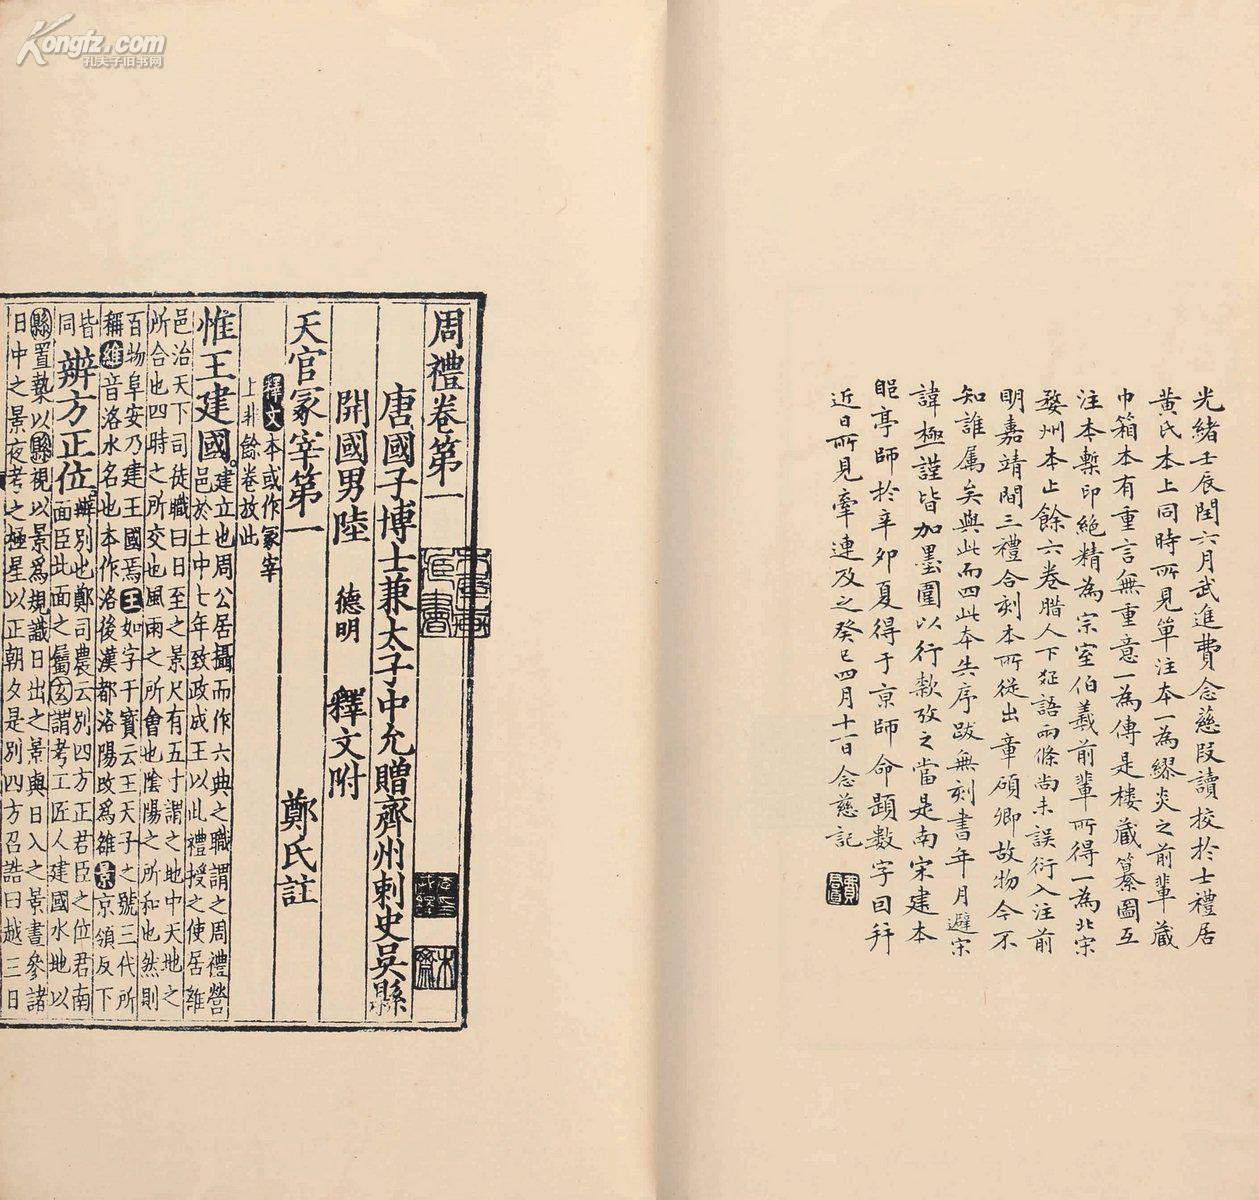 Kongfz.com
孔夫子旧书网
光緒壬辰閏六月武進費念慈叚讀校於士禮居
黃氏本上同時所見單注本一為繆炎之前輩藏
巾箱本有重言無重意一為傳是樓藏纂圖互
注本槧印絕精為宗室伯羲前輩所得一為北宋
婺州本止餘六卷腊人下疑語兩條尚未誤衍入注前
明嘉靖間三禮合刻本所從出章碩卿故物今不
知誰属矣與此而四此本失序跋無刻書年月避宋
諱極謹皆加墨圍以行款攷之當是南宋建本
郘亭師於辛卯夏得于京師命題數字因并
近日所見牽連及之癸巳四月十一日念慈記
周禮卷第一
唐國子博士兼太子中允贈齊州刺史吳縣
開國男陸 德明 釋文附
天官冢宰第一 鄭氏註
釋文本或作冢宰
上非餘卷故此
惟王建國 建立也周公居攝而作六典之職謂之周禮營
邑於土中七年致政成王以此禮授之使居雒
邑治天下司徒職曰日至之景尺有五寸謂之地中天地之
所合也四時之所交也風雨之所會也陰陽之所和也然則
百物阜安乃建王國焉王如字干寶云王天子之號三代所
稱維音洛水名也本作洛後漢都洛陽改為雒景京領反下
皆同
辨方正位 辨別也鄭司農云別四方正君臣之位君南
面臣北面之屬玄謂考工匠人建國水地以
縣置槷以縣視以景為規識日出之景與日入之景晝參諸
日中之景夜考之極星以正朝夕是別四方召誥曰越三日